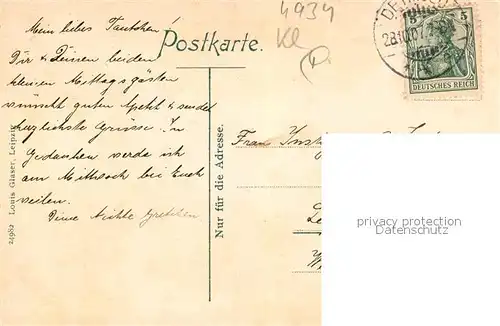 Mein liebes Tantchen!
Dir & Deinen beiden
kleinen Mittagsgästen
wünscht guten Apetit & sendet
herzlichste Grüsse. In
Gedanken werde ich
am Mittwoch bei Euch
weilen.
Deine Nichte Gretchen
Postkarte.
4934
5 5
DEUTSCHES REICH
Frau
Nur für die Adresse.
24962 Louis Glaser, Leipzig
privacy protection
Datenschutz